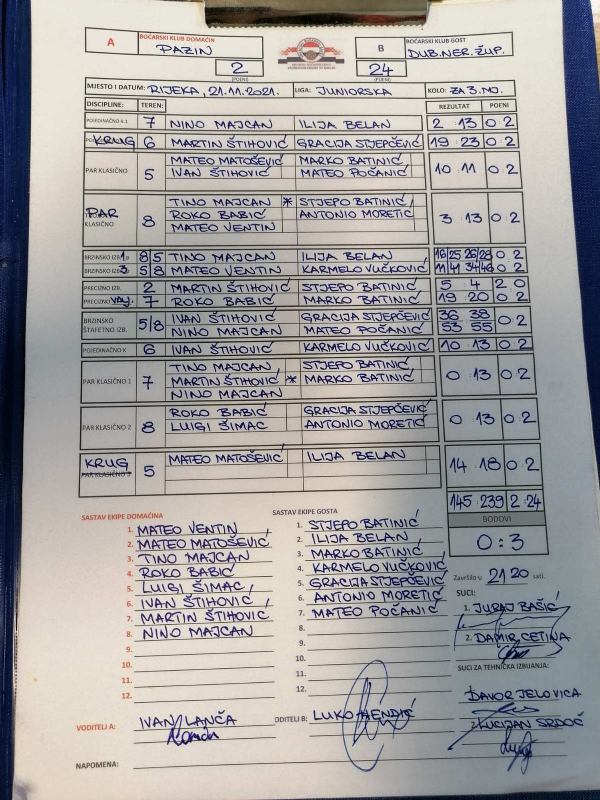 A BOĆARSKI KLUB DOMAĆIN PAZIN
B BOĆARSKI KLUB GOST DUB.NER.ŽUP.
2 24
(POENI) (POENI)
MJESTO I DATUM: RIJEKA, 21.11.2021. LIGA: JUNIORSKA KOLO: ZA 3.MJ.
DISCIPLINE: TEREN: REZULTAT POENI
POJEDINAČNO K.1 7 NINO MAJCAN ILIJA BELAN 2 13 0 2
KRUG 6 MARTIN ŠTIHOVIĆ GRACIJA STJEPČEVIĆ 19 23 0 2
PAR KLASIČNO 5 MATEO MATOŠEVIĆ MARKO BATINIĆ 10 11 0 2
IVAN ŠTIHOVIĆ MATEO POČANIĆ
PAR KLASIČNO 8 TINO MAJCAN * STJEPO BATINIĆ 3 13 0 2
ROKO BABIĆ ANTONIO MORETIĆ
MATEO VENTIN
BRZINSKO IZB. 1 8/5 TINO MAJCAN ILIJA BELAN 16/25 26/28 0 2
BRZINSKO IZB. 3 5/8 MATEO VENTIN KARMELO VUČKOVIĆ 11/41 34/46 0 2
PRECIZNO IZB. 2 MARTIN ŠTIHOVIĆ STJEPO BATINIĆ 5 4 2 0
PRECIZNO 7 ROKO BABIĆ MARKO BATINIĆ 19 20 0 2
BRZINSKO ŠTAFETNO IZB. 5/8 IVAN ŠTIHOVIĆ GRACIJA STJEPČEVIĆ 36 38 0 2
NINO MAJCAN MATEO POČANIĆ 53 55
POJEDINAČNO K 6 IVAN ŠTIHOVIĆ KARMELO VUČKOVIĆ 10 13 0 2
PAR KLASIČNO 1 7 TINO MAJCAN STJEPO BATINIĆ 0 13 0 2
MARTIN ŠTIHOVIĆ * MARKO BATINIĆ
NINO MAJCAN
PAR KLASIČNO 2 8 ROKO BABIĆ GRACIJA STJEPČEVIĆ 0 13 0 2
LUIGI ŠIMAC ANTONIO MORETIĆ
KRUG 5 MATEO MATOŠEVIĆ ILIJA BELAN 14 18 0 2
PAR KLASIČNO 3
145 239 2 24
BODOVI
0:3
SASTAV EKIPE DOMAĆINA
1. MATEO VENTIN
2. MATEO MATOŠEVIĆ
3. TINO MAJCAN
4. ROKO BABIĆ
5. LUIGI ŠIMAC
6. IVAN ŠTIHOVIĆ
7. MARTIN ŠTIHOVIĆ
8. NINO MAJCAN
9.
10.
11.
12.
SASTAV EKIPE GOSTA
1. STJEPO BATINIĆ
2. ILIJA BELAN
3. MARKO BATINIĆ
4. KARMELO VUČKOVIĆ
5. GRACIJA STJEPČEVIĆ
6. ANTONIO MORETIĆ
7. MATEO POČANIĆ
8.
9.
10.
11.
12.
Završilo u 21 20 sati.
SUCI:
1. JURAJ BAŠIĆ
2. DAMIR CETINA
SUCI ZA TEHNIČKA IZBIJANJA:
DAVOR JELOVICA
2. LUCIJAN SRDOČ
VODITELJ A: IVAN LANČA
ODITELJ B: LUKO
NAPOMENA: